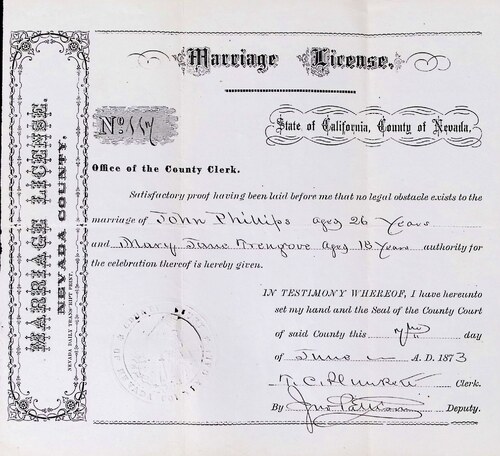 Marriage License.
No. 117
State of California, County of Nevada.
Office of the County Clerk.
Satisfactory proof having been laid before me that no legal obstacle exists to the
marriage of John Phillips aged 26 Years
and Mary Jane Trengove aged 18 Years authority for
the celebration thereof is hereby given.
IN TESTIMONY WHEREOF, I have hereunto
set my hand and the Seal of the County Court
of said County this day
of June A. D. 1873
T. C. Plunkett Clerk.
By Jno Pattison Deputy.
MARRIAGE LICENSE.
NEVADA COUNTY.
NEVADA DAILY TRANSCRIPT PRINT.